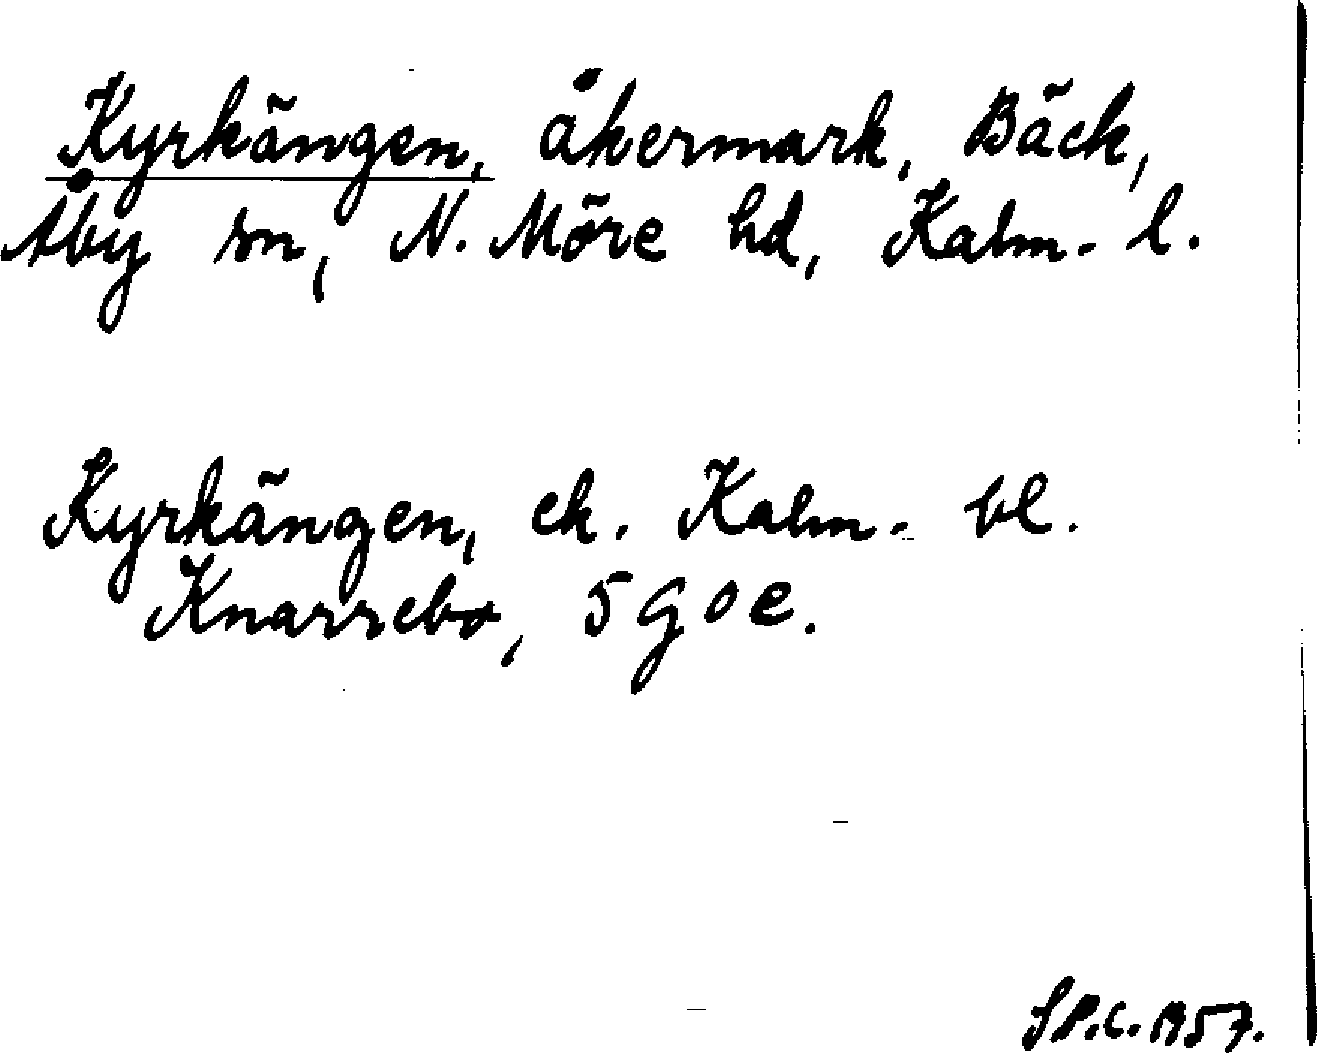 Kyrkängen, åkermark, Bäck,
Åby sn, N. Möre hd, Kalm. l.
Kyrkängen, ek. Kalm. bl.
Knarrebo, 5 g o e.
S.P.C. 1957.